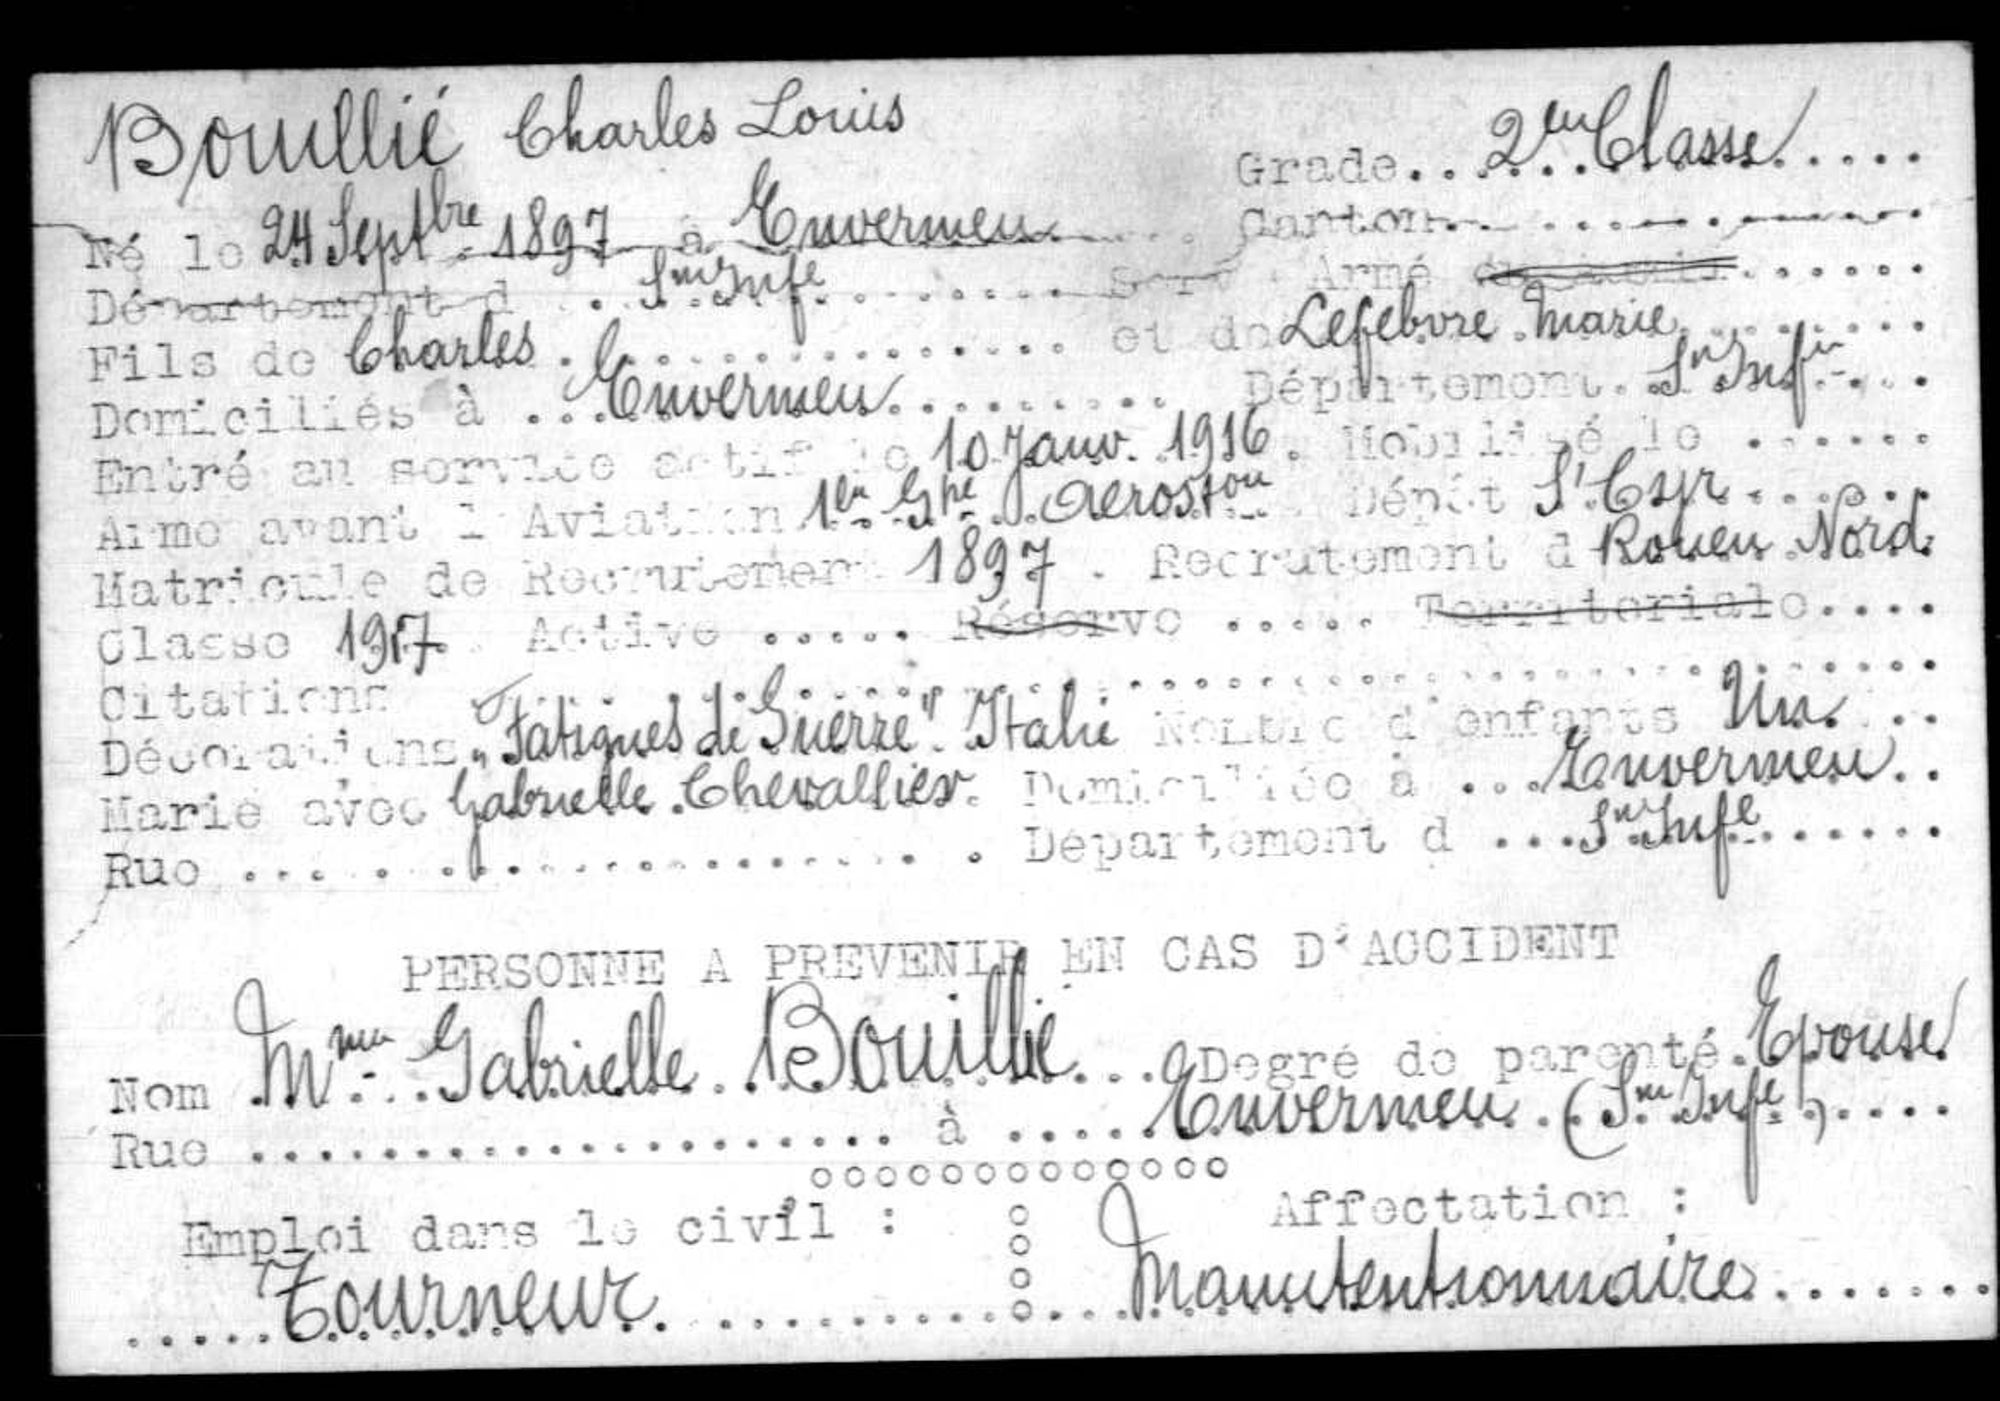 Bouillié Charles Louis
Grade.. 2em Classe.....
Né le 24 Septbre 1897 à Envermeu Canton
Département d . Sne Infe Serv Armé
Fils de Charles et de Lefebvre Marie
Domiciliés à ... Envermeu Département. Sne Infre
Entré au service actif le 10 Janv. 1916. Mobilisé le ......
Arme avant l'Aviation 1er Gpe Aeroston Dépôt St Cyr
Matricule de Recrutement 1897 . Recrutement d Rouen Nord.
Classe 1917. Active ..... Réserve ..... Territoriale....
Citations
Décorations. "Fatigues de Guerre". Italie Nombre d'enfants Un.
Marié avec Gabrielle Chevallier. Domiciliée à ... Envermeu..
Rue .................... Département d ... Sne Infe......
PERSONNE A PREVENIR EN CAS D'ACCIDENT
Nom Mme Gabrielle Bouillié... Degré de parenté. Epouse
Rue .................... à ..... Envermeu. (Sne Infe)....
ooooooooooooo
Emploi dans le civil : Affectation :
Tourneur Manutentionnaire